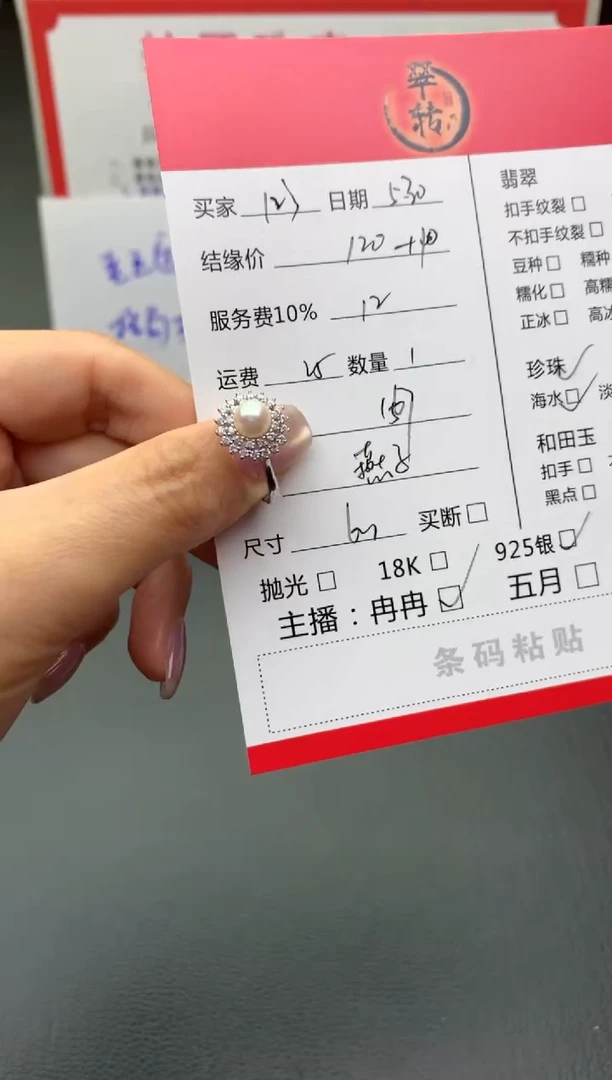 翠
转
买家 123 日期 530
结缘价 120 +10
服务费10% 12
运费 25 数量 1
燕子
尺寸 买断
抛光 18K 925银
主播：冉冉 五月
条码粘贴
翡翠
扣手纹裂
不扣手纹裂
豆种 糯种
糯化 高糯
正冰 高冰
珍珠
海水 淡
和田玉
扣手
黑点